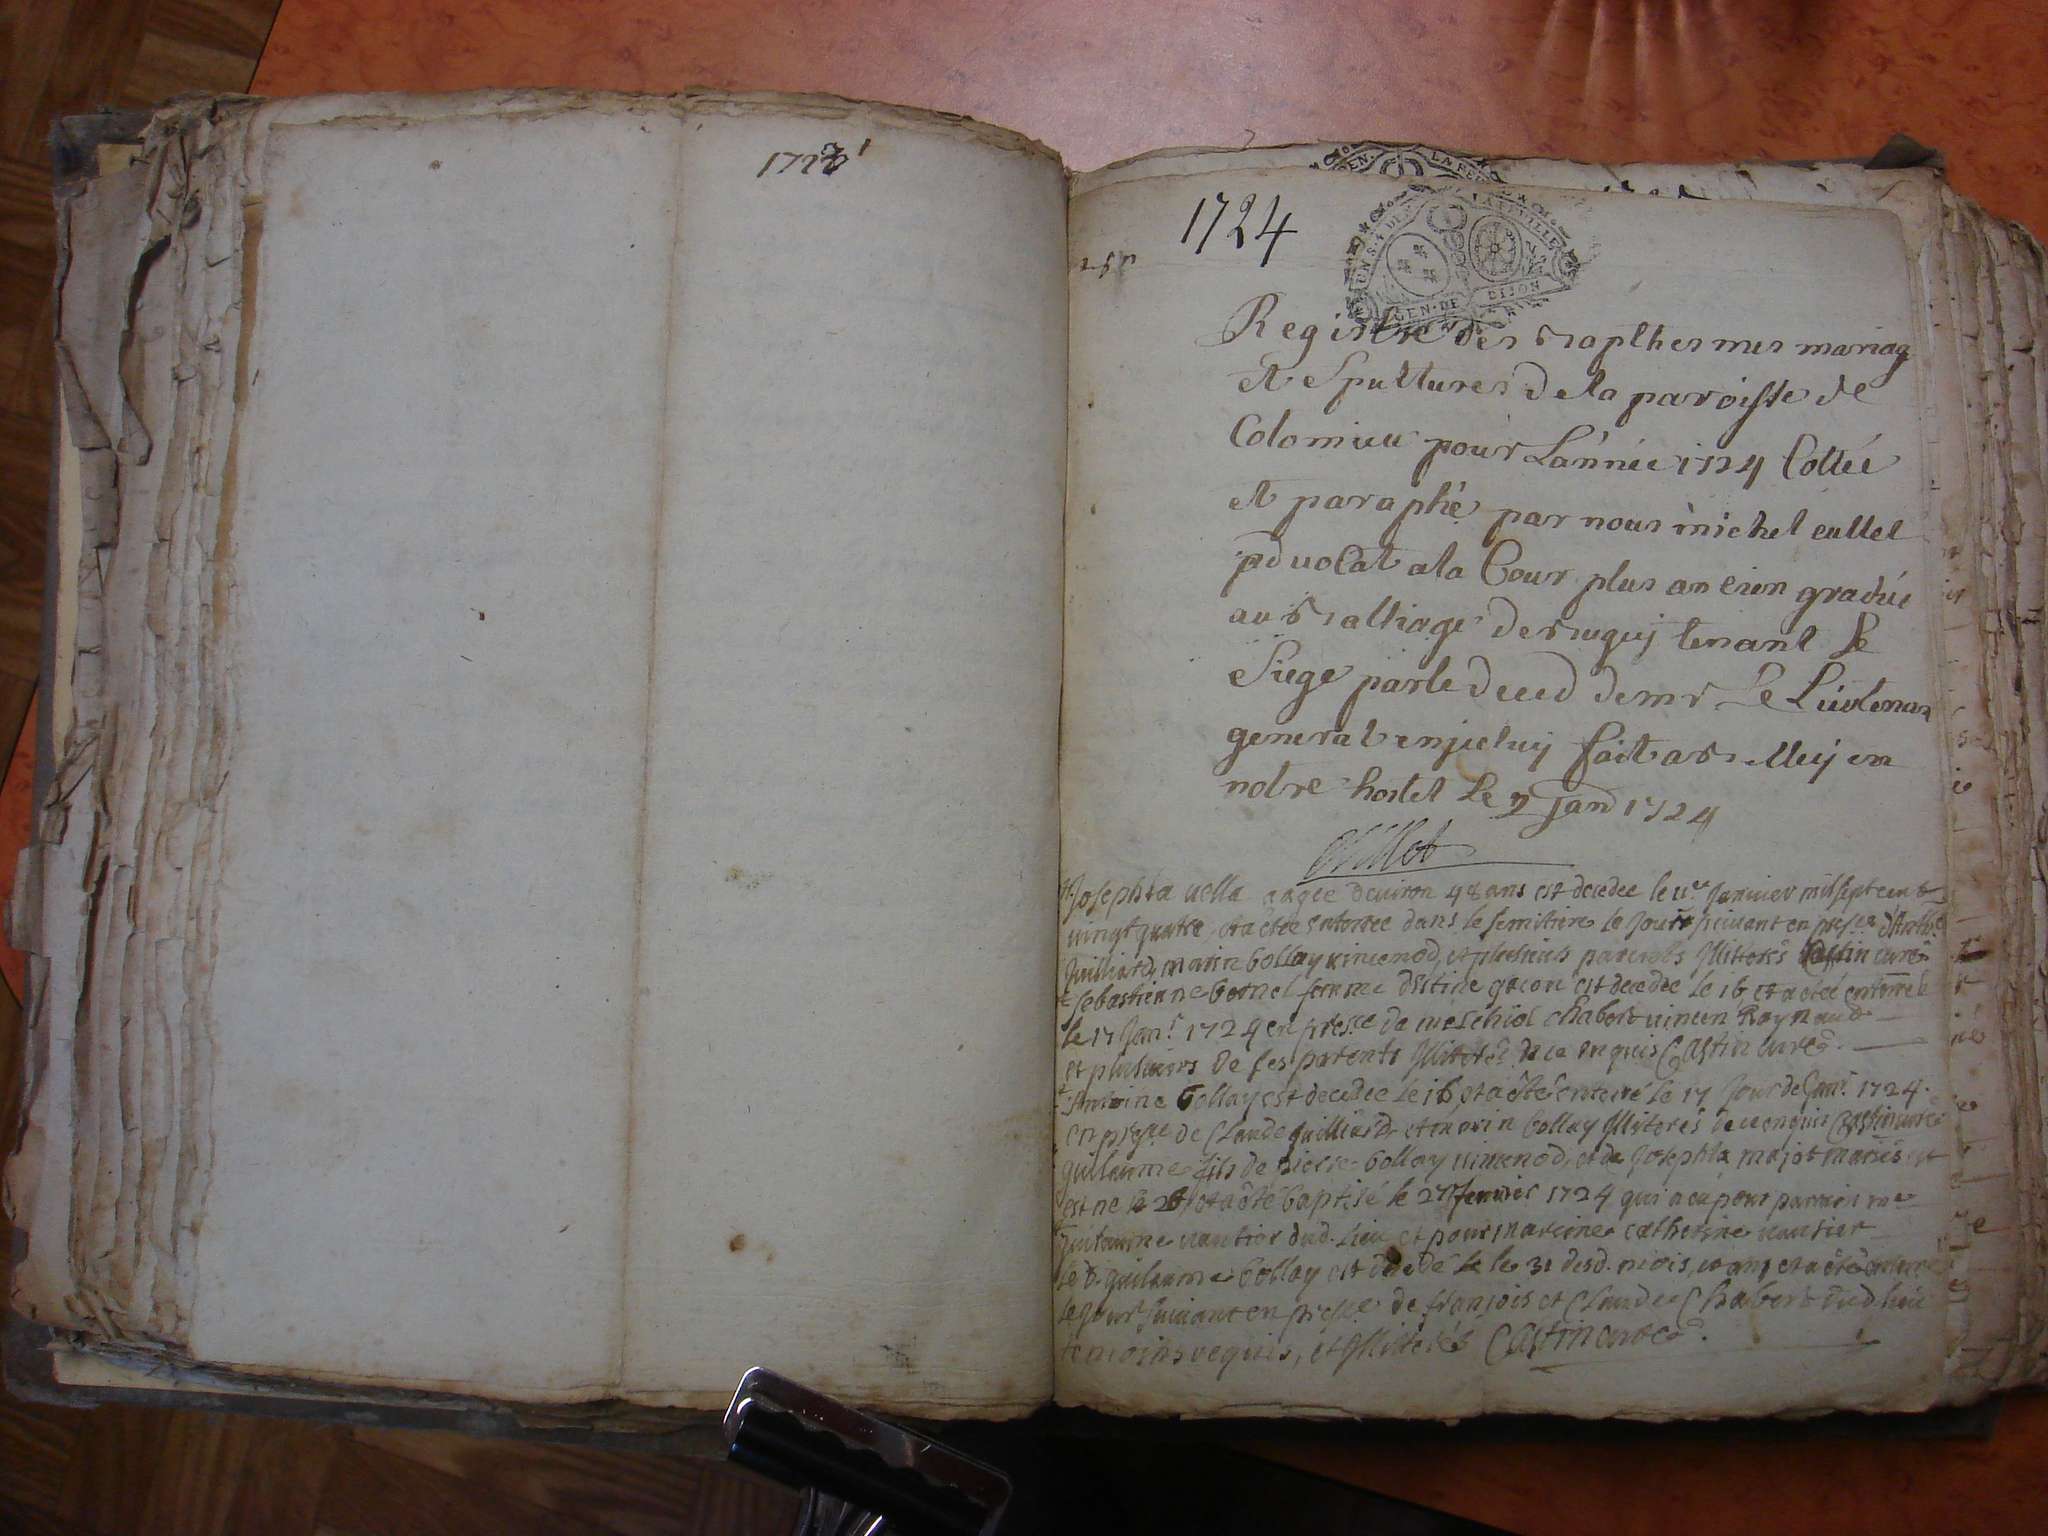 1723
1724
GEN. DE DIJON
Registre des bapthesmes mariag
et Spultures de la paroisse de
Colomieu pour L'année 1724 Cottéé
et paraphé par nous michel cullet
advocat a la Cour plus ancien gradué
au balliage de bugey tenant Le
Siege par le deced de mr Le Lieutenan
general en jceluy fait a belley en
notre hostel Le 7 Janv 1724
Cullet
Joseph aagée d'euiron 48 ans est decedee le Januier mil sept cent
uingt quatre, et a été enterree dans le semitiere le jour suiuant en
Juilliard, marin bollay uincenod, et plusieurs parents Illiteres Castin curé
Sebastienne bornet femme gacon est decedee le 16 et a eté enterreé
le 17 Janr 1724 en presce de melchiol Chabert uincen Raynaud
et plusieurs de ses parents Illiteres de ce enquis Castin curé
Antoine bollay est decedee le 16 et a eté enterré le 17 jour de Janr 1724.
en presce de Claude Juilliard et marin bollay Illiterés de ce enquis Castin curé
guilaume fils de pierre bollay uincenod, et de Josephta majot mariés
est ne le 26 et a été baptisé le 27 Januier 1724 qui a eu pour parrain
guilaume uautier dud. lieu et pour mareine catherine uautier
le d. guilaume bollay est decedé le 31 desd. mois, et an, et a été enterré
le jour suiuant en presce de françois et Claude Chabert dud lieu
temoins requis, et Illiterés Castin curé